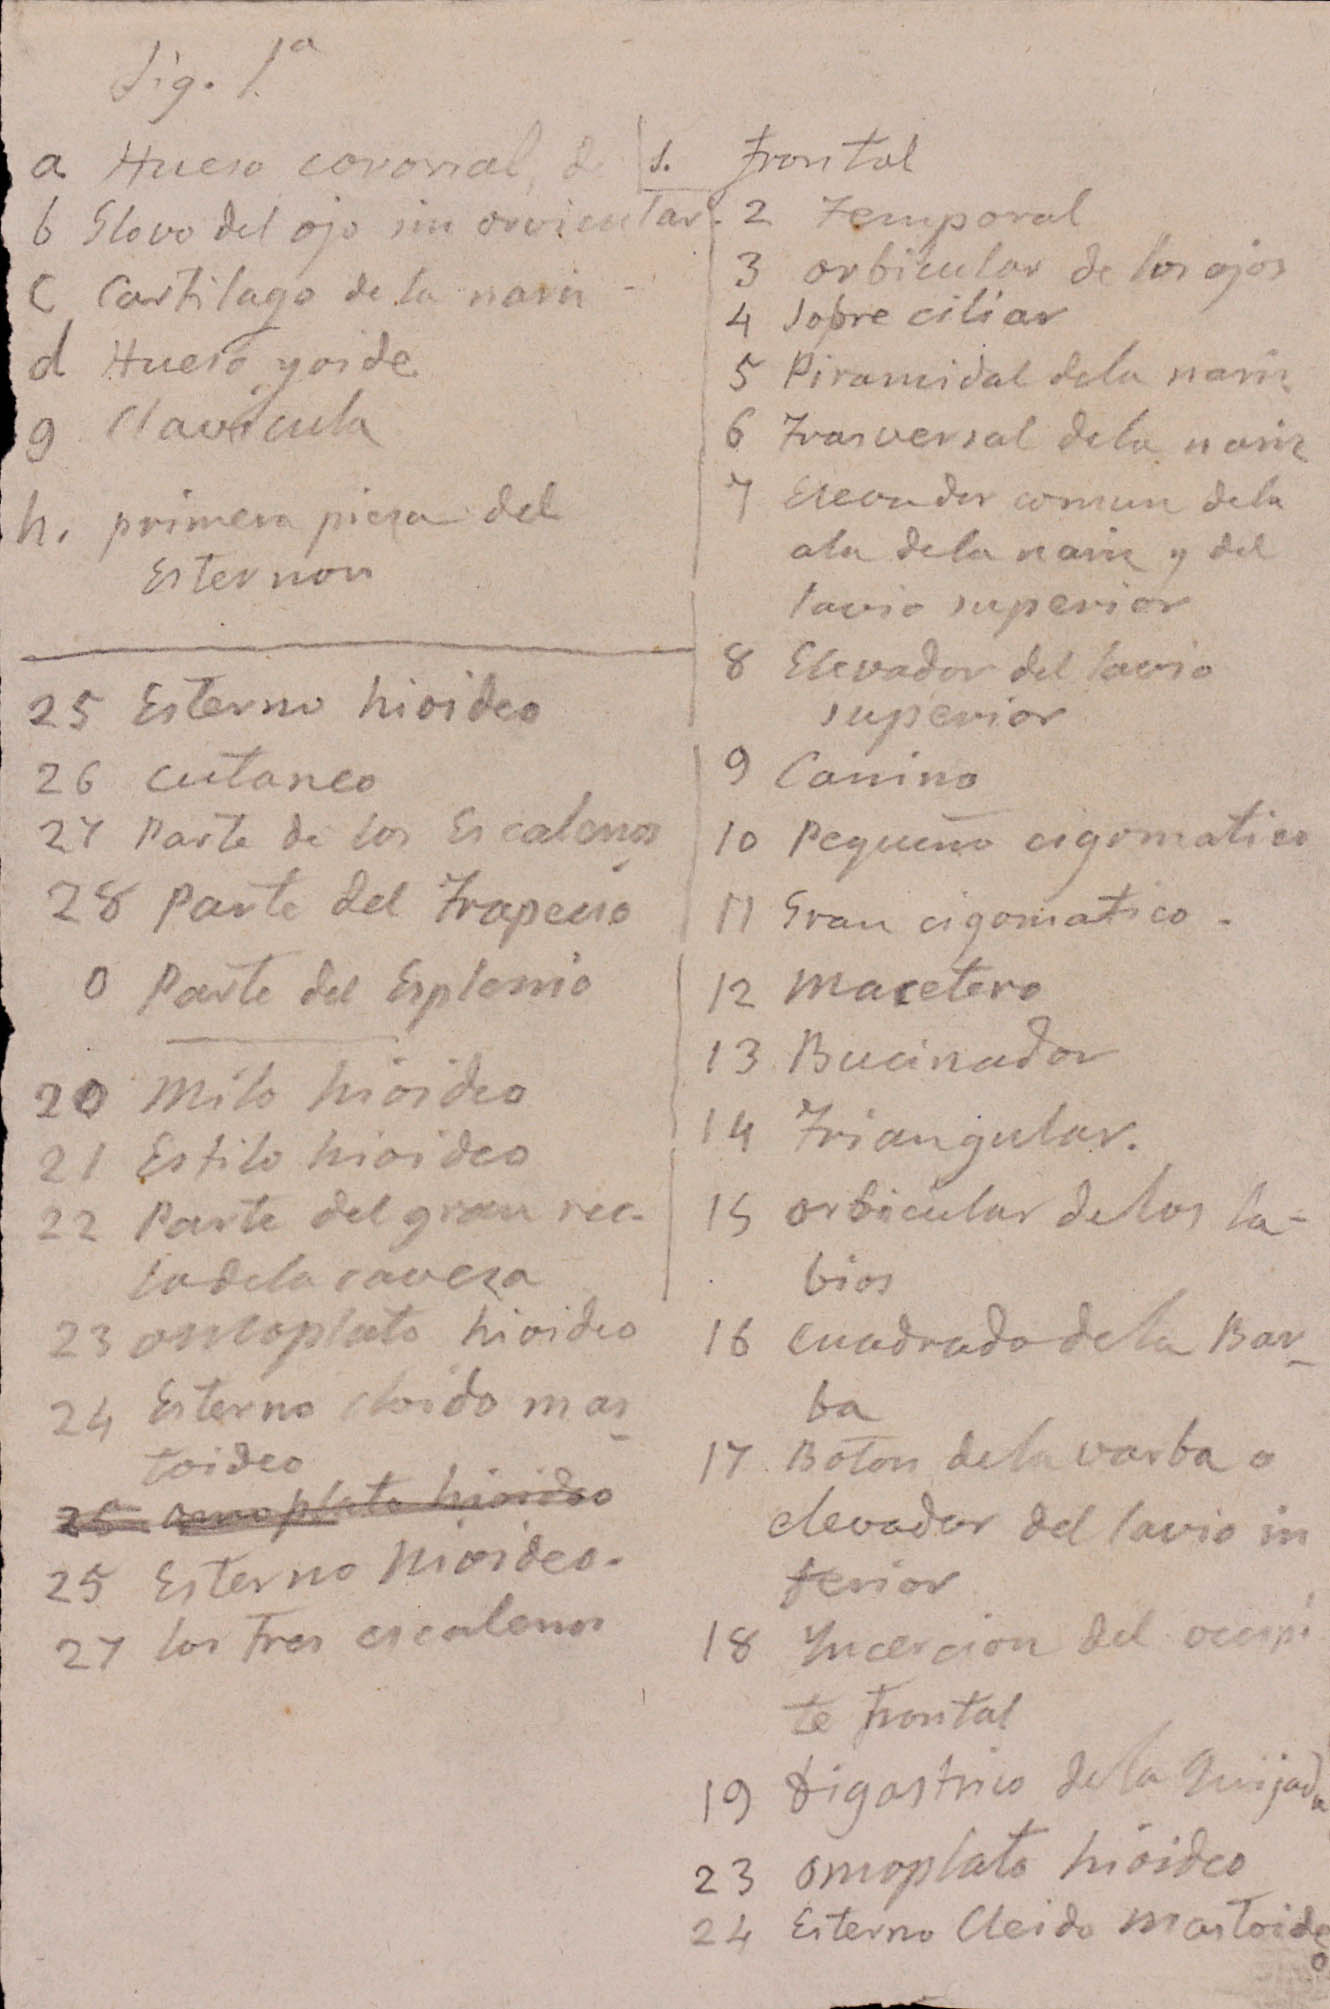 Fig. 1.a
a Hueso coronal, de
b Glovo del ojo sin orvicular.
c Cartilago de la nariz
d Hueso yoide
g Clavicula
h. primera pieza del
Esternon
25 Esterno hioideo
26 cutaneo
27 Parte de los Escalenos
28 Parte del Trapecio
0 Parte del Esplenio
20 Milo hioideo
21 Estilo hioideo
22 Parte del gran rec-
to de la caveza
23 omoplato hioideo
24 Esterno cleido mas
toideo
25 omoplato hioideo
25 Esterno hioideo.
27 los tres escalenos
1. frontal
2 temporal
3 orbicular de los ojos
4 sobre ciliar
5 Piramidal de la nariz
6 Trasversal de la nariz
7 Elevador comun de la
ala de la nariz y del
lavio superior
8 Elevador del lavio
superior
9 Canino
10 Pequeño cigomatico
11 Gran cigomatico.
12 Macetero
13 Bucinador
14 Triangular.
15 orbicular de los la-
bios
16 cuadrado de la Bar-
ba
17 Boton de la varba o
elevador del lavio in
ferior
18 Yncercion del occipi
te frontal
19 digastrico de la Quijada
23 omoplato hioideo
24 Esterno Cleido Mastoideo